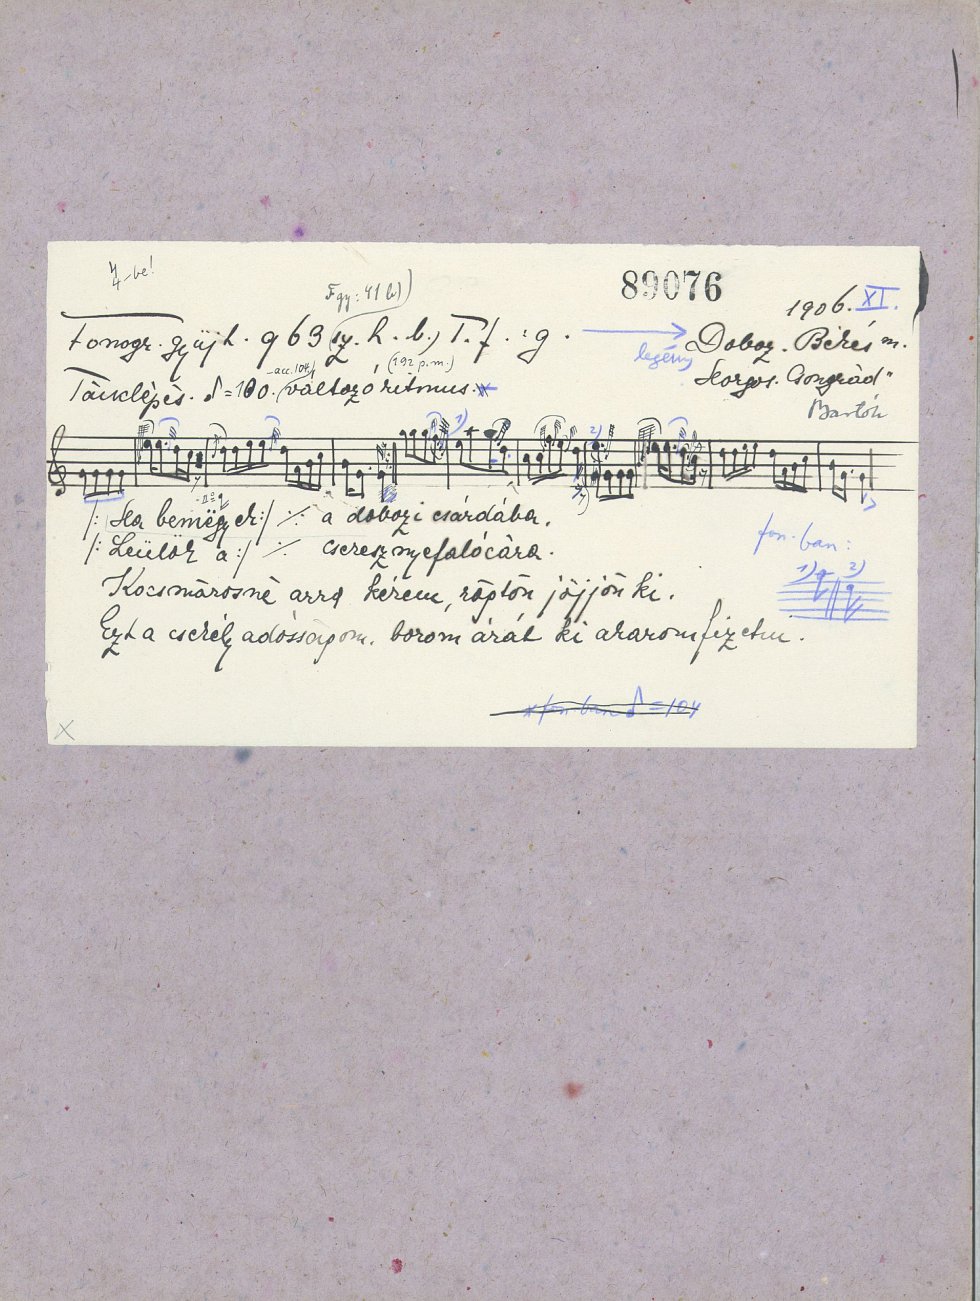 4/4-be!
Fgy: 41b)
89076
1906. XI.
Fonogr. gyüjt. 963 (sz. h. b.) T. f. : g.
legény
Doboz. Békés m.
Horgos. Csongrád"
Bartók
acc. 104
(192 p.m.)
Tánclépés. ♪ = 100. (változó ritmus.
1)
2)
|: Ha bemëgyek :| ·/· a dobozi csárdába,
|: Leülök a :| ·/· cseresznyefalócára.
Kocsmárosné arra kérem, röptön jöjjön ki.
Ezt a csekély adósságom, borom árát ki akarom fizetni.
fon-ban:
1) 2)
* fon-ban ♪ = 104
X